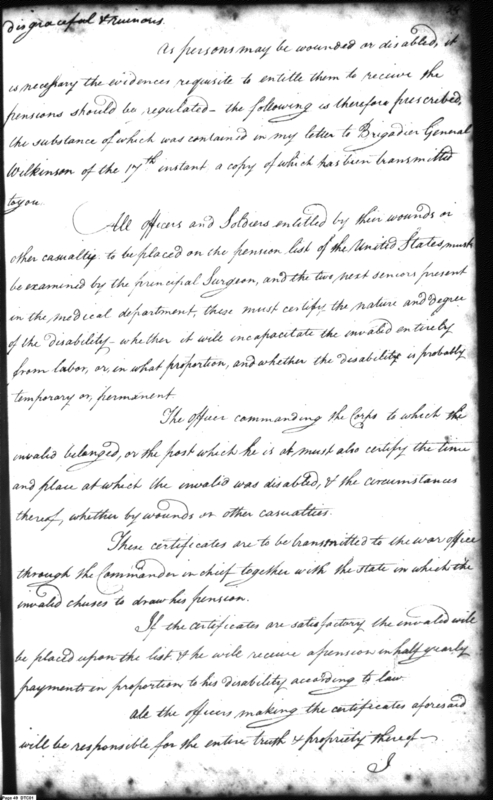 disgraceful & ruinous.
As persons may be wounded or disabled, it
is necessary the evidences requisite to entitle them to receive the
pensions should be regulated – the following is therefore prescribed,
the substance of which was contained in my letter to Brigadier General
Wilkinson of the 17th instant a copy of which has been transmitted
to you
All officers and Soldiers entitled by their wounds or
other casualty to be placed on the pension list of the United States, must
be examined by the principal Surgeon, and the two next seniors present
in the medical department, these must certify the nature and degree
of the disability – whether it will incapacitate the invalid entirely
from labor, or, in what proportion, and whether the disability is probably
temporary or, permanent
The officer commanding the Corps to which the
invalid belonged, or the post which he is at, must also certify the time
and place at which the invalid was disabled, & the circumstances
thereof, whether by wounds or other casualties.
These certificates are to be transmitted to the war office
through the Commander in chief together with the state in which the
invalid chuses to draw his pension.
If the certificates are satisfactory the invalid will
be placed upon the list & he will receive a pension in half yearly
payments in proportion to his disability according to law
All the officers making the certificates aforesaid
will be responsible for the entire truth & propriety thereof –
I
Page 49 DTC01